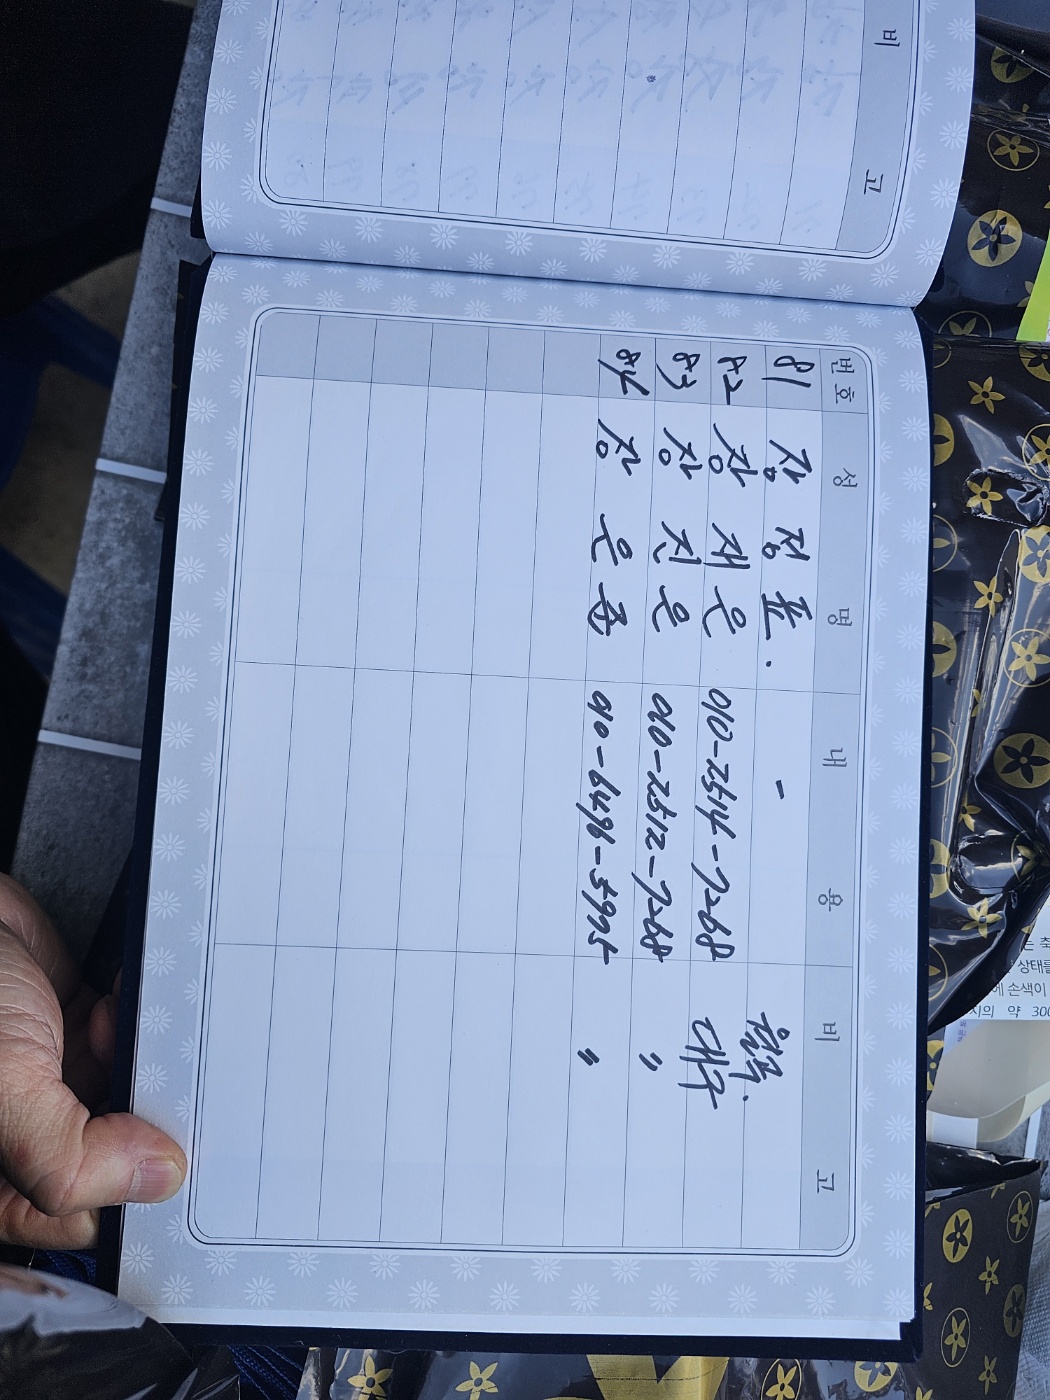 비 고
번호 성 명 내 용 비 고
81 장 정 표. - 원주.
82 장 재 은 010-2514-7268 대구
83 장 진 은 010-2512-7268 〃
84 장 은 준 010-6496-5995 〃
는 축
상태를
에 손색이
지의 약 300